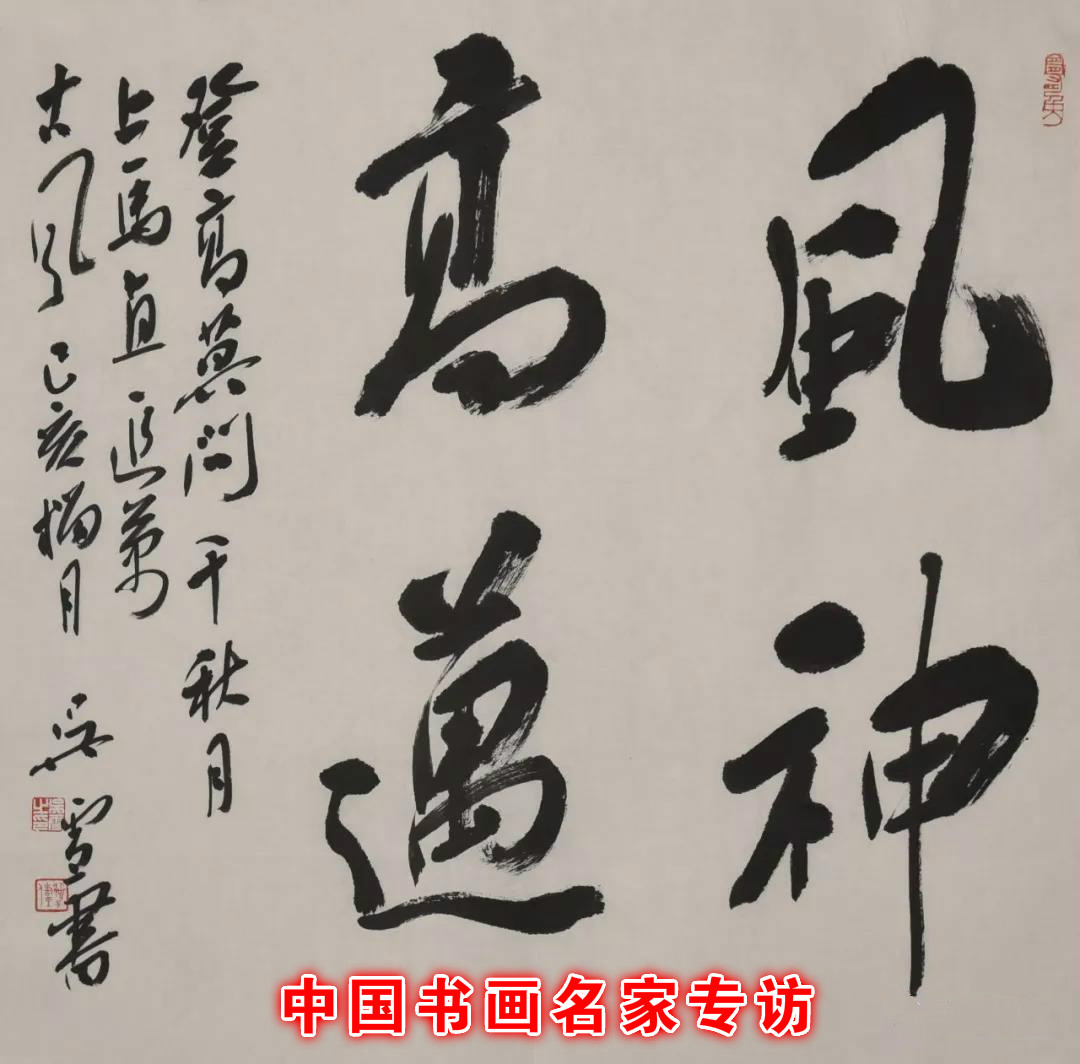 風神
高邁
登高莫問千秋月
上馬直追萬
古風 己亥榴月 吳雪書
中国书画名家专访